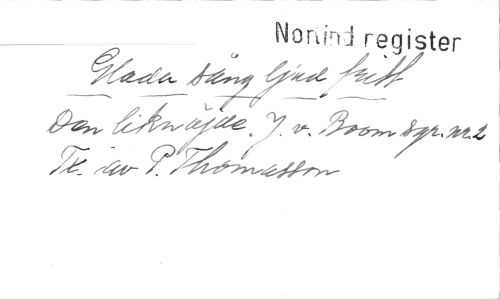 Norlind register
Glada sång ljud fritt
Den liknöjde. J. v. Boom sgr. nr. 2
Tx. av P. Thomasson